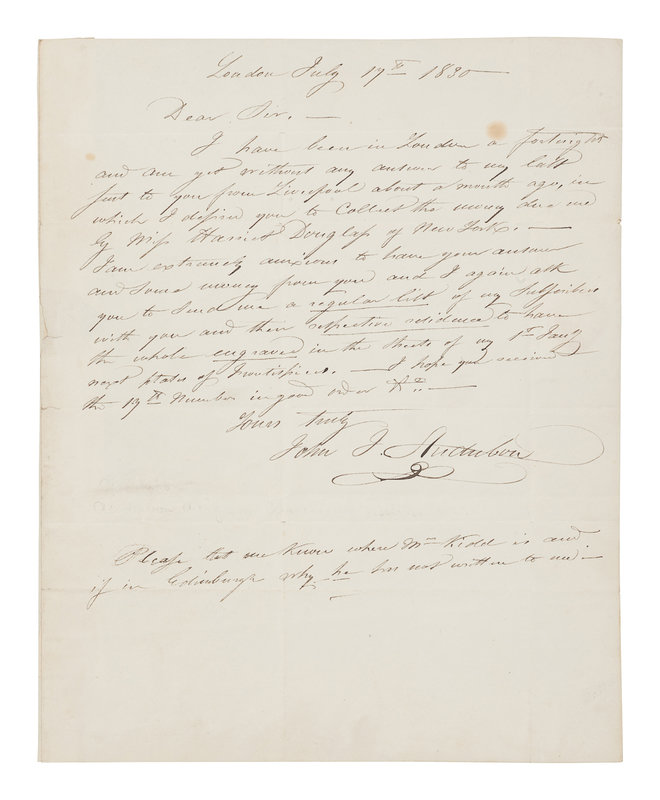 London July 17th 1830 —
Dear Sir. —
I have been in London a fortnight
and am yet without any answer to my last
sent to you from Liverpool about a month ago, in
which I desired you to Collect the money due me
by Miss Harriet Douglass of New York. —
I am extremely anxious to have your answer
and some money from you and I again ask
you to send me a regular list of my Subscribers
with you and their respective residence to have
the whole engraved in the sheets of my 1st Jany
next plates of Frontispiece. — I hope you received
the 17th Number in good order &c. —
Yours truly
John J. Audubon
Please let me know where Mr Kidd is and
if in Edinburgh why he has not written to me. —